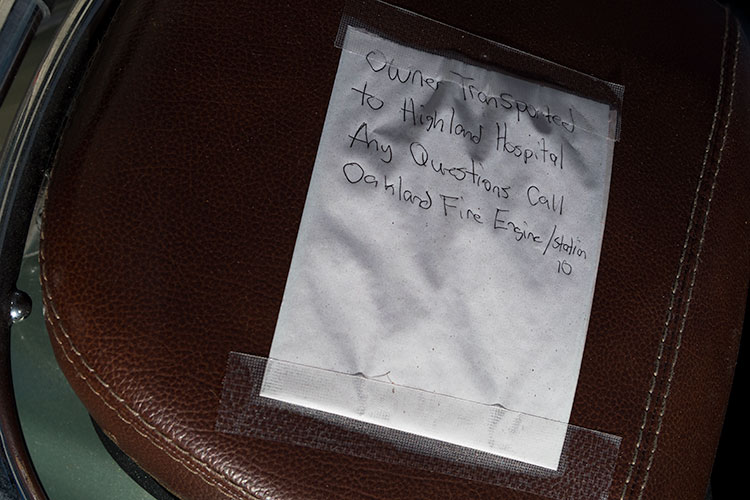 Owner Transported
to Highland Hospital
Any Questions Call
Oakland Fire Engine/Station
10